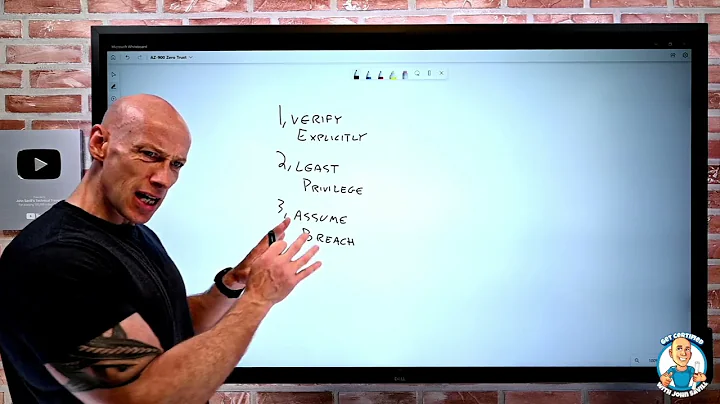 Microsoft Whiteboard
AZ-900 Zero Trust
1, VERIFY
EXPLICITLY
2, LEAST
PRIVILEGE
3, ASSUME
BREACH
DELL
GET CERTIFIED
WITH JOHN SAVILL